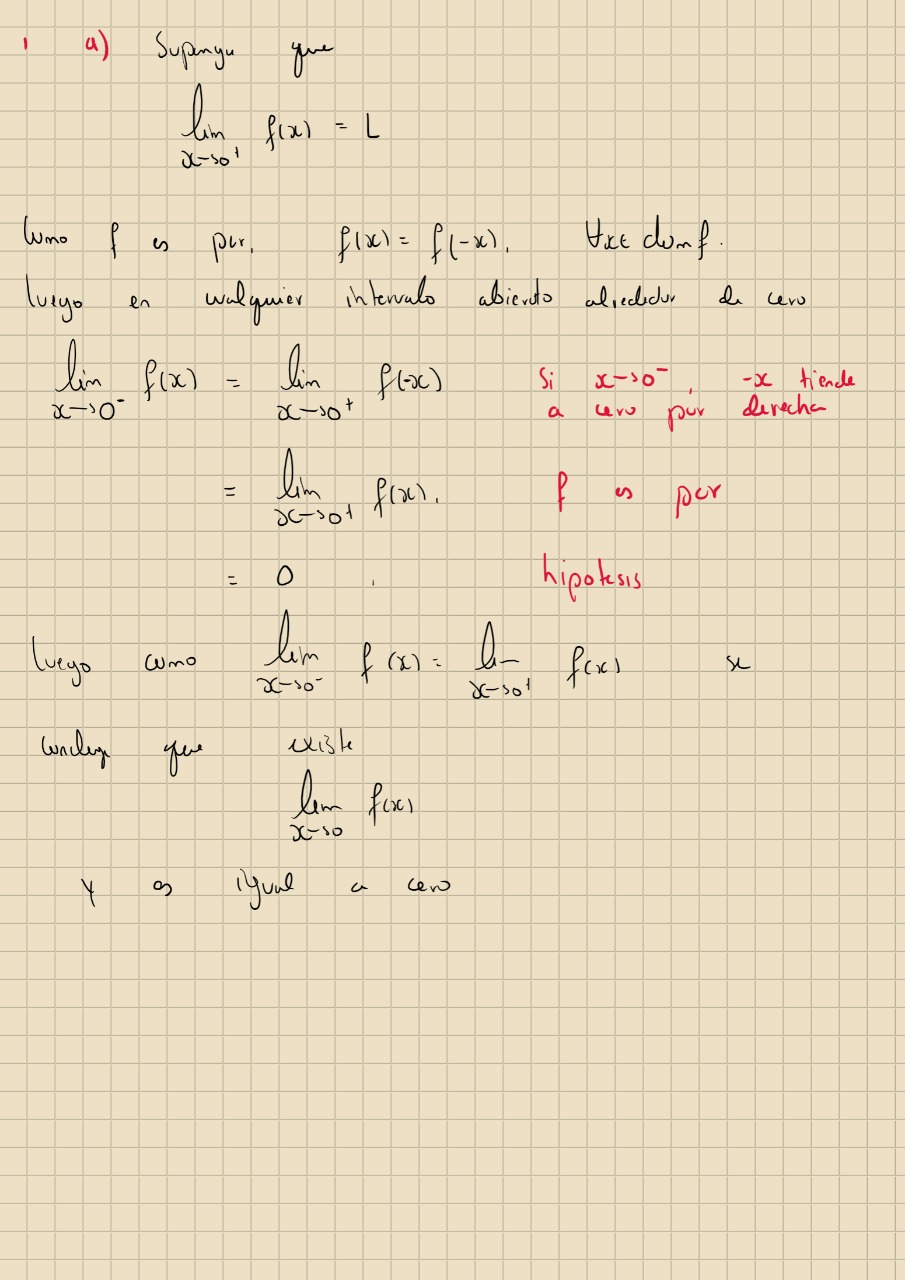 1 a) Supongu que
lim f(x) = L
x→0⁺
Como f es par, f(x) = f(-x), ∀x∈ domf.
luego en cualquier intervalo abierto alrededor de cero
lim f(x) = lim f(-x) Si x→0⁻, -x tiende
x→0⁻ x→0⁺ a cero por derecha
= lim f(x), f es par
x→0⁺
= 0 , hipotesis
luego como lim f(x) = lim f(x) se
x→0⁻ x→0⁺
concluye que existe
lim f(x)
x→0
y es igual a cero